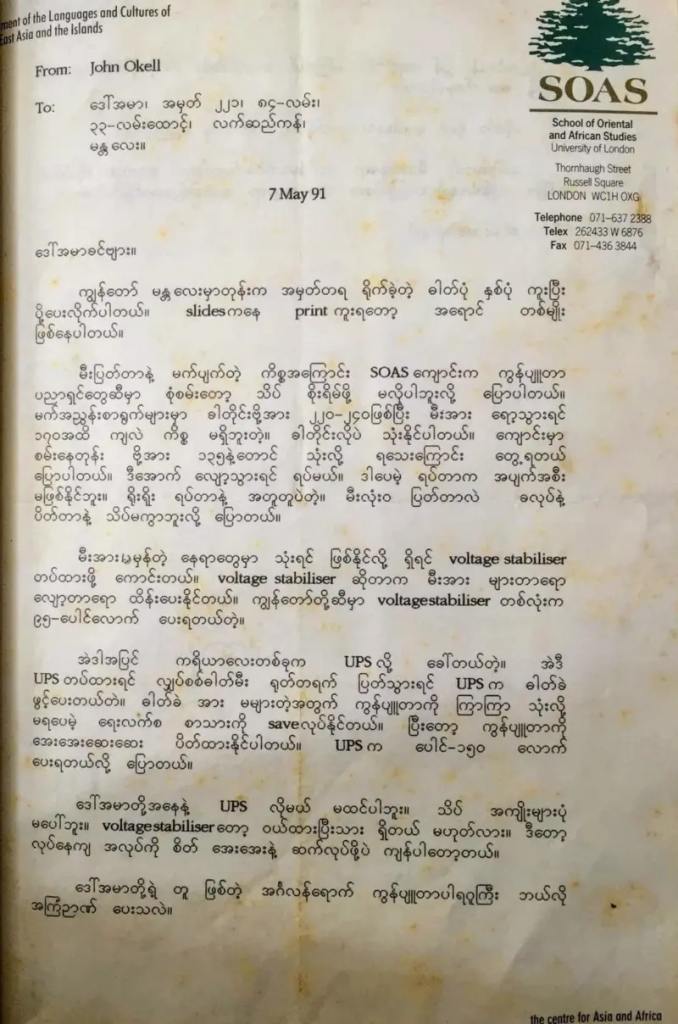 ment of the Languages and Cultures of
East Asia and the Islands
From: John Okell
To: ဒေါ်အမာ၊ အမှတ် ၂၂၁၊ ၈၄-လမ်း၊
၃၃-လမ်းထောင့်၊ လက်ဆည်ကန်၊
မန္တလေး။
SOAS
School of Oriental
and African Studies
University of London
Thornhaugh Street
Russell Square
LONDON WC1H OXG
Telephone 071-637 2388
Telex 262433 W 6876
Fax 071-436 3844
7 May 91
ဒေါ်အမာခင်ဗျား။
ကျွန်တော် မန္တလေးမှာတုန်းက အမှတ်တရ ရိုက်ခဲ့တဲ့ ဓါတ်ပုံ နှစ်ပုံ ကူးပြီး
ပို့ပေးလိုက်ပါတယ်။ slidesကနေ print ကူးရတော့ အရောင် တစ်မျိုး
ဖြစ်နေပါတယ်။
မီးပြတ်တာနဲ့ မက်ပျက်တဲ့ ကိစ္စအကြောင်း SOAS ကျောင်းက ကွန်ပျူတာ
ပညာရှင်တွေဆီမှာ စုံစမ်းတော့ သိပ် စိုးရိမ်ဖို့ မလိုပါဘူးလို့ ပြောပါတယ်။
မက်အညွှန်းစာရွက်များမှာ ဓါတိုင်းဗို့အား ၂၂၀-၂၄၀ဖြစ်ပြီး မီးအား ရော့သွားရင်
၁၇၀အထိ ကျလဲ ကိစ္စ မရှိဘူးတဲ့။ ဓါတိုင်းလိုပဲ သုံးနိုင်ပါတယ်။ ကျောင်းမှာ
စမ်းနေတုန်း ဗို့အား ၁၃၅နဲ့တောင် သုံးလို့ ရသေးကြောင်း တွေ့ရတယ်
ပြောပါတယ်။ ဒီအောက် လျော့သွားရင် ရပ်မယ်။ ဒါပေမဲ့ ရပ်တာက အပျက်အစီး
မဖြစ်နိုင်ဘူး။ ရိုးရိုး ရပ်တာနဲ့ အတူတူပဲတဲ့။ မီးလုံးဝ ပြတ်တာလဲ ခလုပ်နဲ့
ပိတ်တာနဲ့ သိပ်မကွာဘူးလို့ ပြောတယ်။
မီးအားမမှန်တဲ့ နေရာတွေမှာ သုံးရင် ဖြစ်နိုင်လို့ ရှိရင် voltage stabiliser
တပ်ထားဖို့ ကောင်းတယ်။ voltage stabiliser ဆိုတာက မီးအား များတာရော
လျော့တာရော ထိန်းပေးနိုင်တယ်။ ကျွန်တော်တို့ဆီမှာ voltagestabiliser တစ်လုံးက
၉၅-ပေါင်လောက် ပေးရတယ်တဲ့။
အဲဒါအပြင် ကရိယာလေးတစ်ခုက UPSလို့ ခေါ်တယ်တဲ့။ အဲဒီ
UPS တပ်ထားရင် လျှပ်စစ်ဓါတ်မီး ရုတ်တရက် ပြတ်သွားရင် UPSက ဓါတ်ခဲ
ဖွင့်ပေးတယ်တဲ။ ဓါတ်ခဲ အား မများတဲ့အတွက် ကွန်ပျူတာကို ကြာကြာ သုံးလို့
မရပေမဲ့ ရေးလက်စ စာသားကို saveလုပ်နိုင်တယ်။ ပြီးတော့ ကွန်ပျူတာကို
အေးအေးဆေးဆေး ပိတ်ထားနိုင်ပါတယ်။ UPSက ပေါင်-၁၅၀ လောက်
ပေးရတယ်လို့ ပြောတယ်။
ဒေါ်အမာတို့အနေနဲ့ UPS လိုမယ် မထင်ပါဘူး။ သိပ် အကျိုးများပုံ
မပေါ်ဘူး။ voltagestabiliserတော့ ဝယ်ထားပြီးသား ရှိတယ် မဟုတ်လား။ ဒီတော့
လုပ်နေကျ အလုပ်ကို စိတ် အေးအေးနဲ့ ဆက်လုပ်ဖို့ပဲ ကျန်ပါတော့တယ်။
ဒေါ်အမာတို့ရဲ့ တူ ဖြစ်တဲ့ အင်္ဂလန်ရောက် ကွန်ပျူတာပါရဂူကြီး ဘယ်လို
အကြံဉာဏ် ပေးသလဲ။
the centre for Asia and Africa